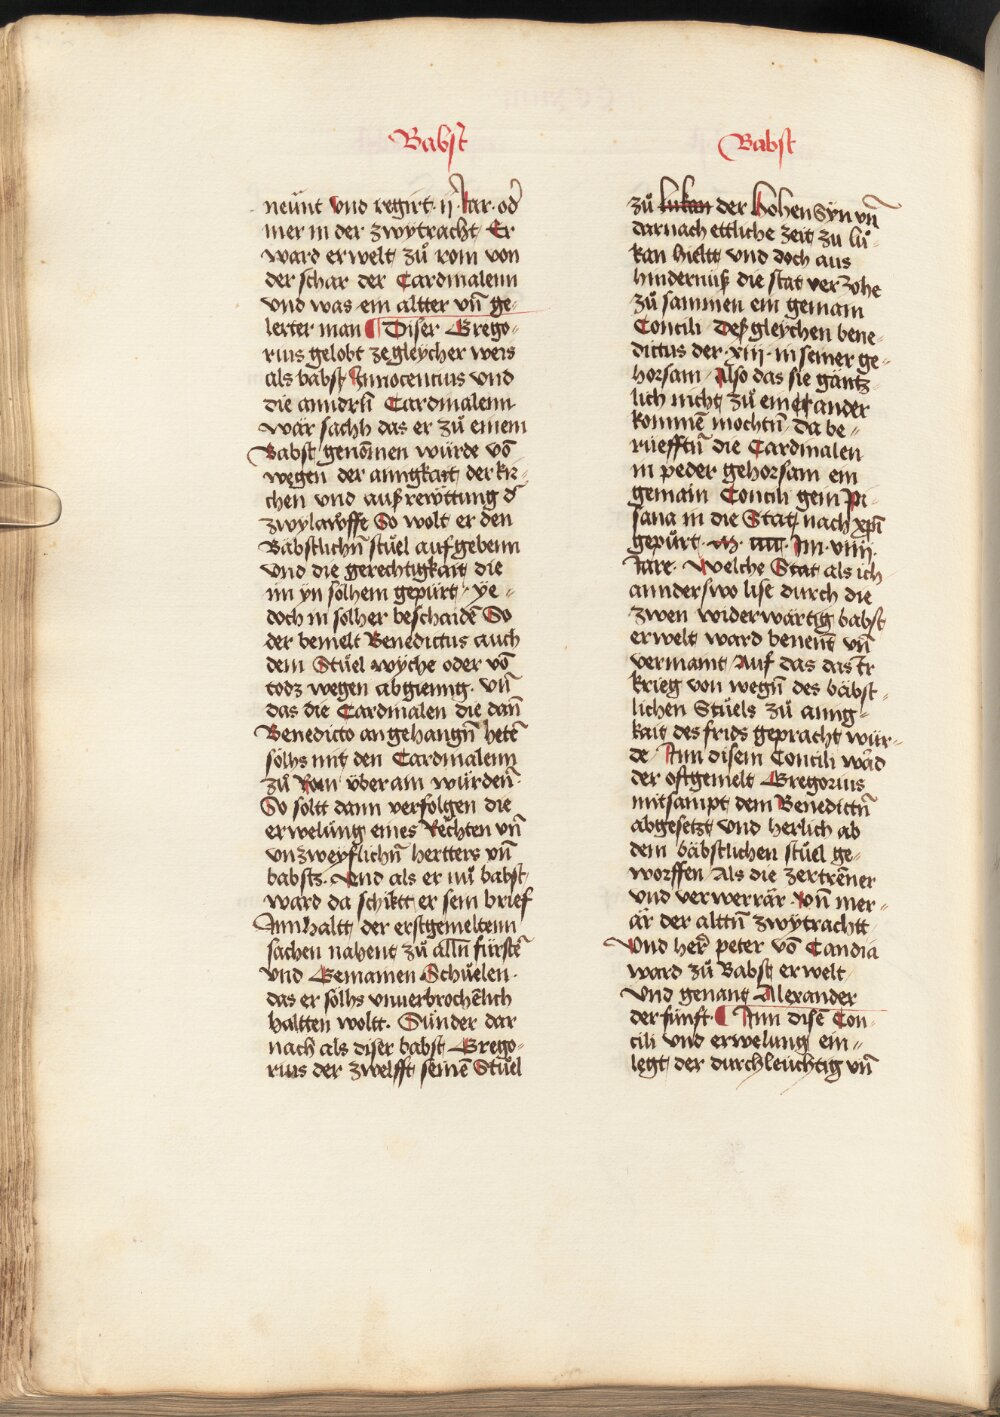 Babst
neünt vnd regirt · ij · Jar · od̄
mer in der zwytracht Er
ward erwelt zů rom von
der schar der Cardinalenn
vnd was ein altter vn̄ ge⸗
lerter man ¶ Diser Grego⸗
rius gelobt ze gleycher weis
als babst Innocencius vnd
die anndrn̄ Cardinalenn
wär sachh das er zů einem
Babst genom̄en würde vō
wegen der ainigkait der kir⸗
chen vnd auß rewttung d̄
zwylawffe So wolt er den
Bäbstlichn̄ stůel aufgebenn
vnd die gerechtigkait die
im yn solhem gepürt / ye⸗
doch in solher beschaidē So
der bemelt Benedictus auch
dem Stůel wyche oder vō
todz wegen abgienng · vn̄
das die Cardinalen die dan̄
Benedicto an gehangn̄ hetē
sölhs mit den Cardinalenn
zů Rom v̈ber ain würden̄ ·
So soltt dann verfolgen die
erwelüng eines Rechten vn̄
vnzweyflichn̄ hertters vn̄
babsts · Vnd als er nů babst
ward da schiktt er sein brief
Innhaltt der erstgemeltenn
sachen nahent zů alln̄ fürstē
vnd Gemainen Schůelen ·
das er sölhs vnuerbrochēlich
haltten woltt · Sünder dar
nach als diser babst Grego⸗
rius der zwelfft seinē Stůel
Babst
zů lukan der Hohen Syn vn̄
darnach ettliche zeit zu lů⸗
kan hieltt vnd doch aus
hindernüß die stat ver zohe
zů sammen ein gemain
Concili Deßgleychen bene⸗
dictus der · xiij · in seiner ge⸗
horsam / Also das sie gäntz⸗
lich nicht zů ein ander
kommē mochtn̄ / da be⸗
rüefftn̄ die Cardinalen
in peder gehorsam ein
gemain Concili gein Pi⸗
sana in die Stat / nach xp̄i
gepürt · M · iiii · Im · viiij ·
Jare · Welche Stat als ich
annderswo lise durch die
zwen widerwärtig babst
erwelt ward benent̄ vn̄
vermaint Auf das das Er
krieg von wegn̄ des bäbst⸗
lichen Stůels zů ainig⸗
kait des frids gepracht wür⸗
de / Ann disem Concili wād
der oftgemelt Gregorius
mitsampt dem Benedictn̄
abgesetzt vnd herlich ab
dem bäbstlichen stůel ge⸗
worffen / Als die zertrēner
vnd verwerrär · vn̄ mer⸗
är der alttn̄ zwytrachtt
Vnd her̄ peter vō Candia
ward zů Babst erwelt
vnd genant Alexander
der fünft · ¶ Ann disē Con⸗
cili vnd erwelung ein⸗
legt / der durchleüchtig vn̄